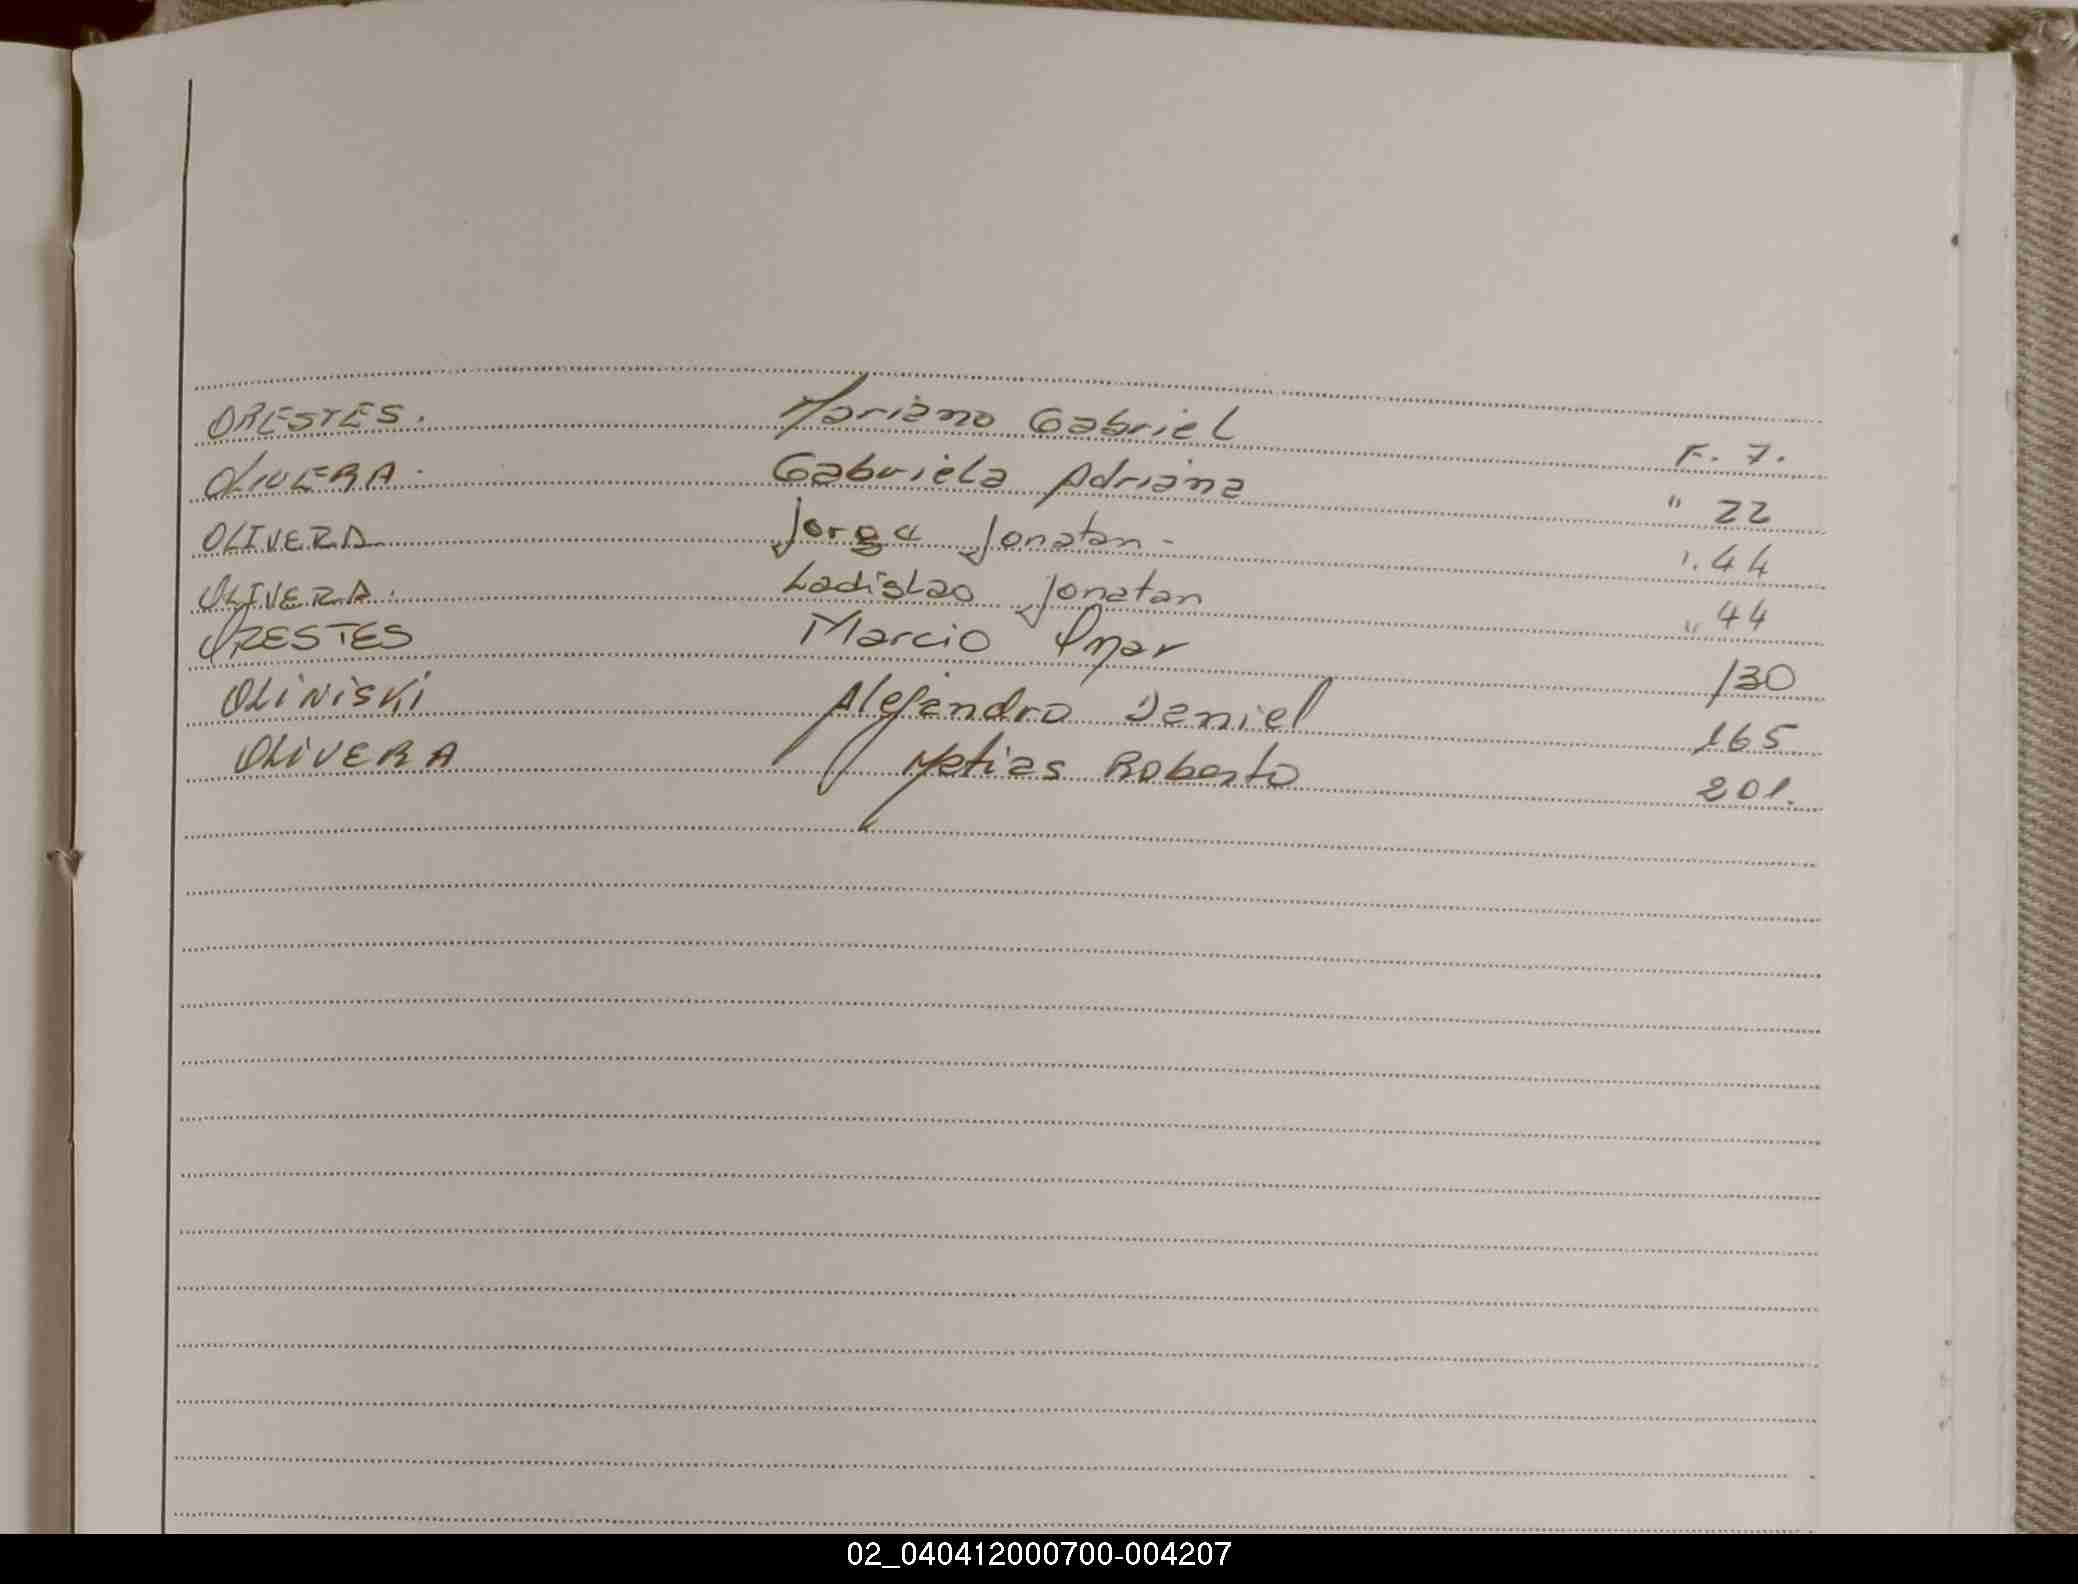 ORESTES. Mariano Gabriel F. 7.
OLIVERA. Gabriela Adriana " 22
OLIVERA Jorge Jonatan - " 44
OLIVERA. Ladislao Jonatan " 44
ORESTES Marcio Omar 130
OLINISKI Alejandro Daniel 165
OLIVERA Matias Roberto 201.
02_040412000700-004207